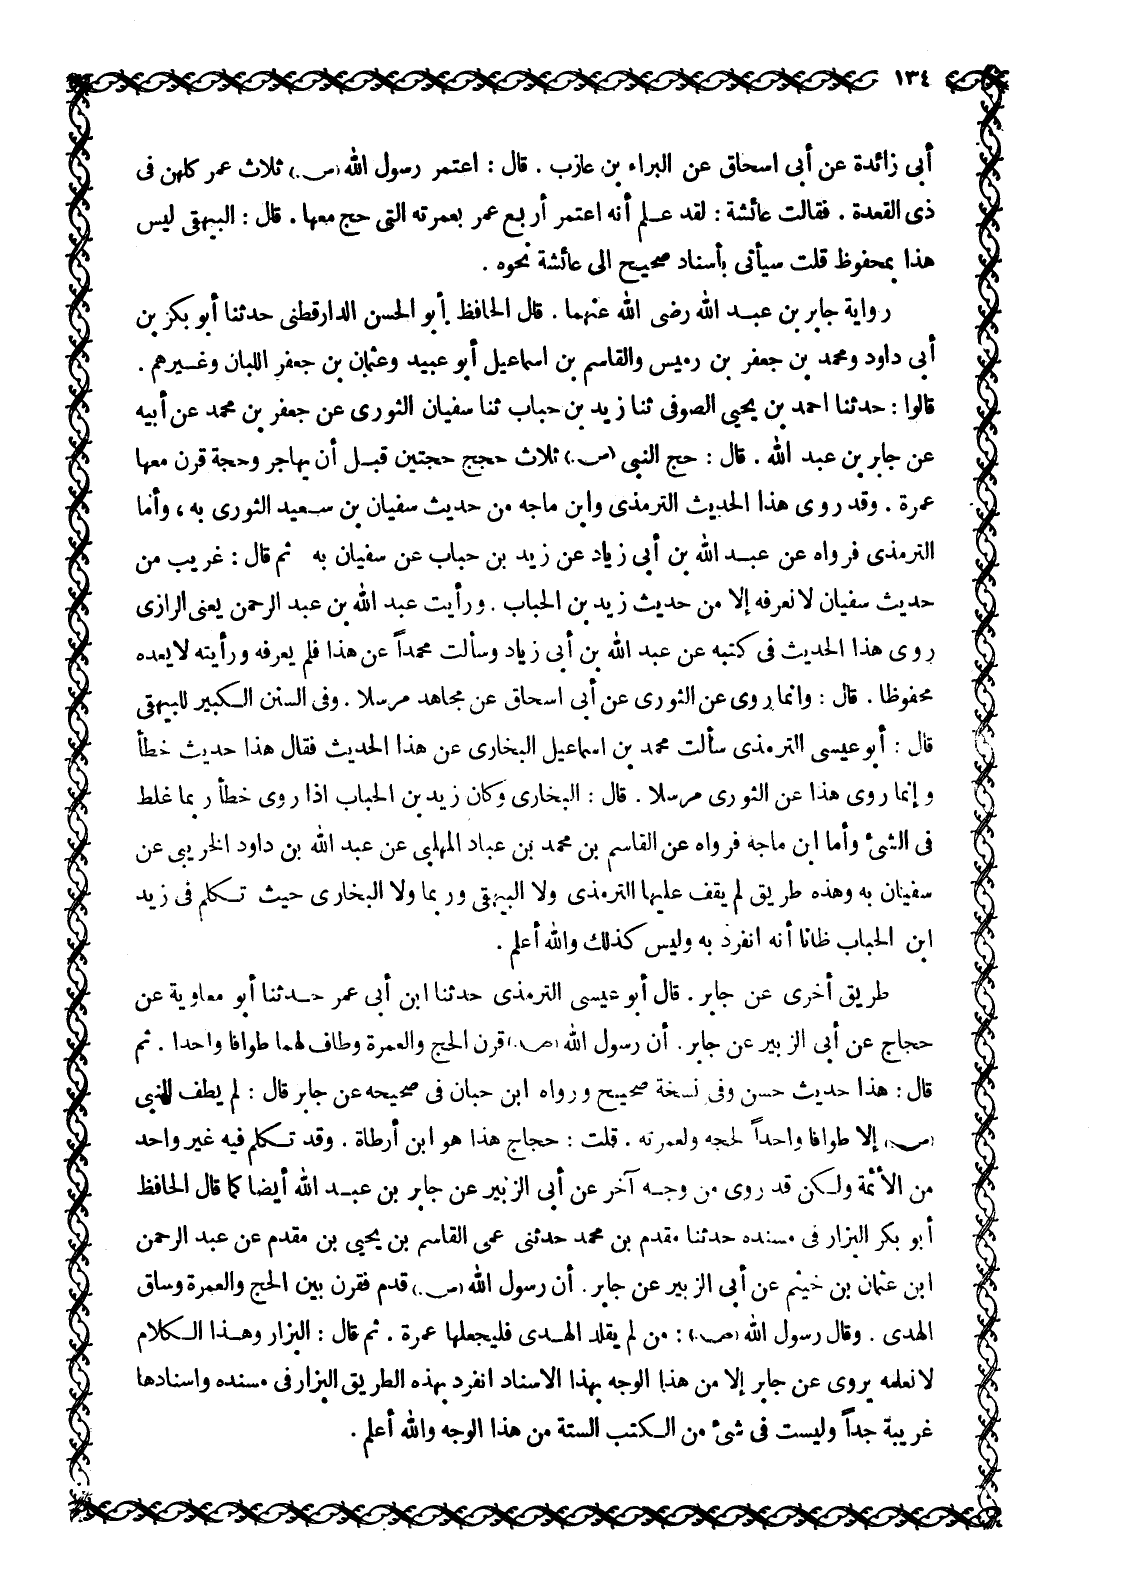 ١٣٤
أبى زائدة عن أبى اسحاق عن البراء بن عازب . قال : اعتمر رسول الله (ص.) ثلاث عمر كلهن فى
ذى القعدة . فقالت عائشة : لقد عـلم أنه اعتمر أربع عمر بعمرته التى حج معها . قال : البيهقى ليس
هذا بمحفوظ قلت سيأتى بأسناد صحيح الى عائشة نحوه .
رواية جابر بن عبـد الله رضى الله عنهما . قال الحافظ أبو الحسن الدارقطنى حدثنا أبو بكز بن
أبى داود ومحمد بن جعفر بن رميس والقاسم بن اسماعيل أبو عبيد وعثمان بن جعفر اللبان وغـيرهم .
قالوا : حدثنا احمد بن يحيى الصوفى ثنا زيد بن حباب ثنا سفيان الثورى عن جعفر بن محمد عن أبيه
عن جابر بن عبد الله . قال : حج النبى (ص.) ثلاث حجج حجتين قبـل أن يهاجر وحجة قرن معها
عمرة . وقد روى هذا الحديث الترمذى وابن ماجه من حديث سفيان بن سـعيد الثورى به ، وأما
الترمذى فرواه عن عبـد الله بن أبى زياد عن زيد بن حباب عن سفيان به ثم قال : غريب من
حديث سفيان لا نعرفه إلا من حديث زيد بن الحباب . ورأيت عبد الله بن عبد الرحمن يعنى الرازى
روى هذا الحديث فى كتبه عن عبد الله بن أبى زياد وسألت محمداً عن هذا فلم يعرفه ورأيته لا يعده
محفوظا . قال : وانما روى عن الثورى عن أبى اسحاق عن مجاهد مرسلا . وفى السنن الـكبير للبيهقى
قال : أبو عيسى الترمذى سألت محمد بن اسماعيل البخارى عن هذا الحديث فقال هذا حديث خطأ
و إنما روى هذا عن الثورى مرسلا . قال : البخارى وكان زيد بن الحباب اذا روى خطأ ربما غلط
فى الشئ وأما ابن ماجه فرواه عن القاسم بن محمد بن عباد المهلبى عن عبد الله بن داود الخريبى عن
سفيان به وهذه طريق لم يقف عليها الترمذى ولا البيهقى وربما ولا البخارى حيث تـكلم فى زيد
ابن الحباب ظانا أنه انفرد به وليس كذلك والله أعلم .
طريق أخرى عن جابر . قال أبو عيسى الترمذى حدثنا ابن أبى عمر حـدثنا أبو معاوية عن
حجاج عن أبى الزبير عن جابر . أن رسول الله (ص.) قرن الحج والعمرة وطاف لهما طوافا واحدا . ثم
قال : هذا حديث حسن وفى نسخة صحيح ورواه ابن حبان فى صحيحه عن جابر قال : لم يطف النبى
(ص.) إلا طوافا واحداً لحجه ولعمرته . قلت : حجاج هذا هو ابن أرطاة . وقد تـكلم فيه غير واحد
من الأئمة ولـكن قد روى من وجـه آخر عن أبى الزبير عن جابر بن عبـد الله أيضا كما قال الحافظ
أبو بكر البزار فى مسنده حدثنا مقدم بن محمد حدثنى عمى القاسم بن يحيى بن مقدم عن عبد الرحمن
ابن عثمان بن خيثم عن أبى الزبير عن جابر . أن رسول الله (ص.) قدم فقرن بين الحج والعمرة وساق
الهدى . وقال رسول الله (ص.) : من لم يقلد الهـدى فليجعلها عمرة . ثم قال : البزار وهـذا الـكلام
لا نعلمه يروى عن جابر إلا من هذا الوجه بهذا الاسناد انفرد بهذه الطريق البزار فى مسنده واسنادها
غريبة جداً وليست فى شئ من الـكتب الستة من هذا الوجه والله أعلم .